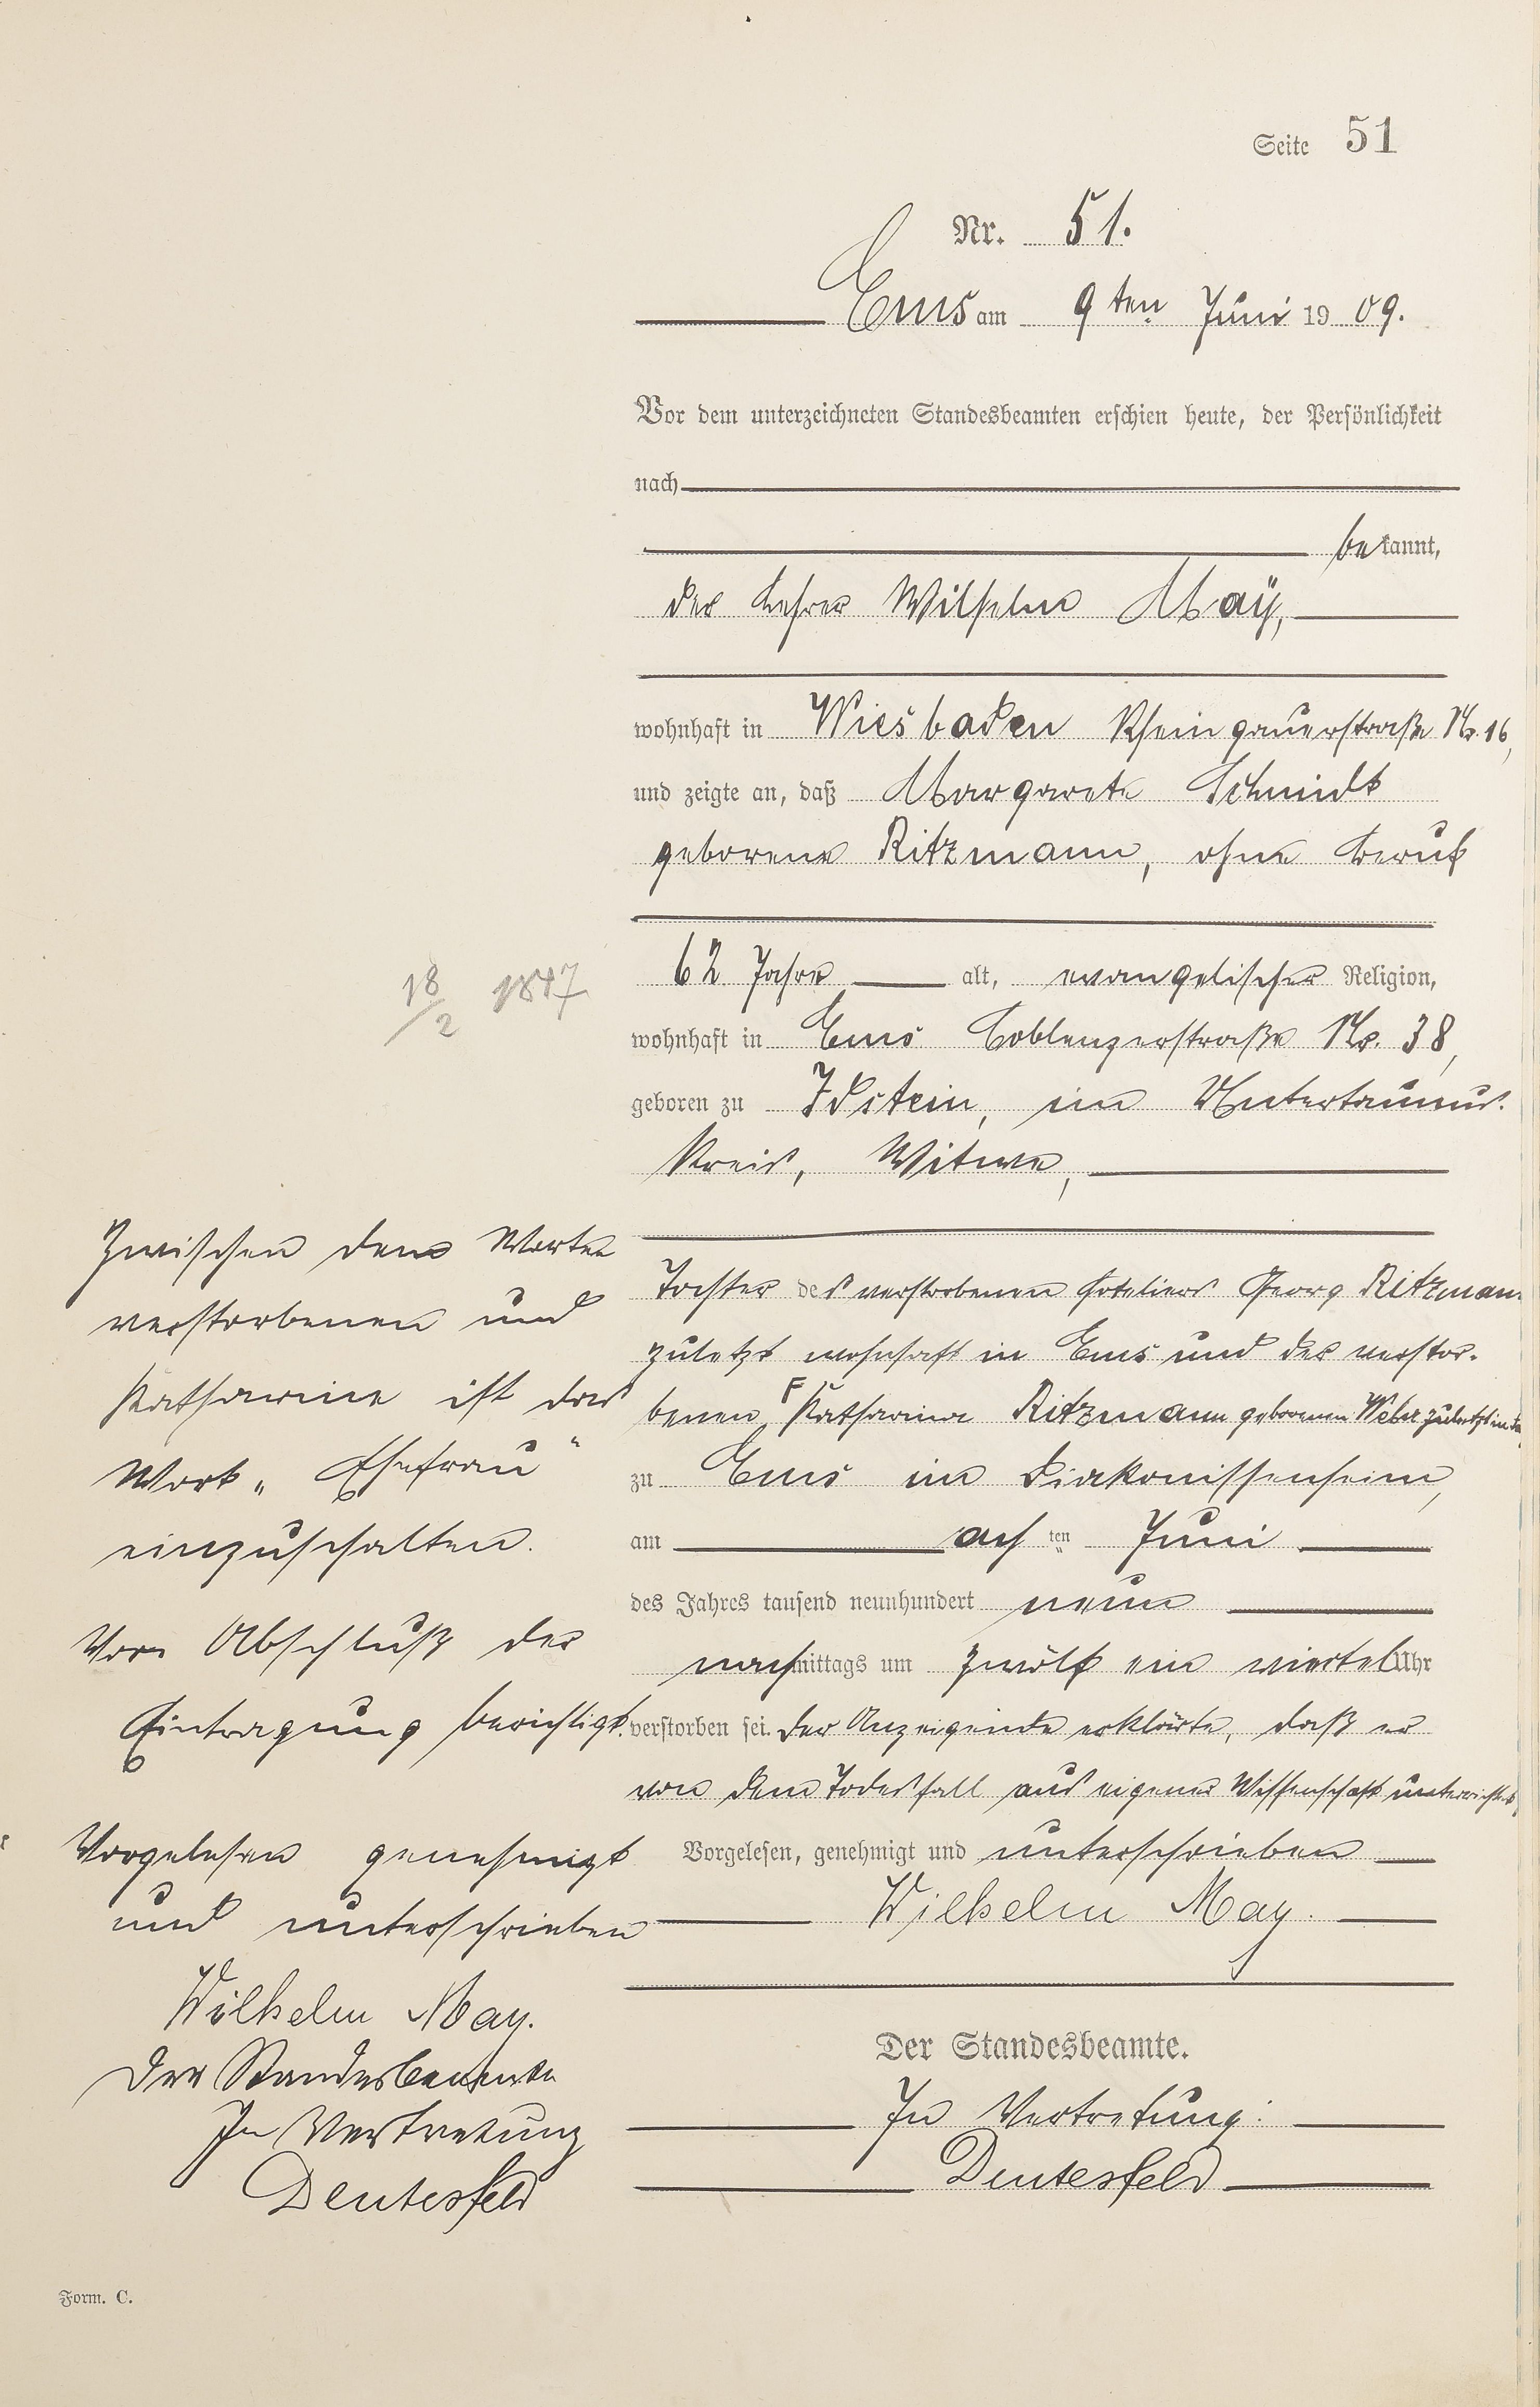 Seite 51
Nr. 51.
Ems am 9ten Juni 1909.
Vor dem unterzeichneten Standesbeamten erschien heute, der Persönlichkeit
nach
bekannt,
der Lehrer Wilhelm May,
wohnhaft in Wiesbaden Rheingauerstraße Nr. 16,
und zeigte an, daß Margarete Schmidt
geborene Ritzmann, ohne Beruf
62 Jahre alt, evangelischer Religion,
18/2 1847
wohnhaft in Ems Coblenzerstraße Nr. 38,
geboren zu Idstein, im Untertaunus-
kreis, Witwe,
Tochter des verstorbenen Hoteliers Georg Ritzmann
zuletzt wohnhaft in Ems und der verstor-
benen F Katharina Ritzmann geborenen Weber zuletzt in
zu Ems im Diakonissenheim,
am achten Juni
des Jahres tausend neunhundert neun
nachmittags um zwölf ein viertel Uhr
verstorben sei. Der Anzeigende erklärte, daß er
von dem Todesfall aus eigener Wissenschaft unterrichtet
Vorgelesen, genehmigt und unterschrieben
Wilhelm May.
Der Standesbeamte.
In Vertretung:
Deutesfeld
Zwischen dem Worten
verstorbenen und
Katharina ist das
Wort „Ehefrau"
einzuschalten.
Vor Abschluß der
Eintragung berichtigt.
Vorgelesen genehmigt
und unterschrieben
Wilhelm May.
Der Standesbeamte
In Vertretung
Deutesfeld
Form. C.